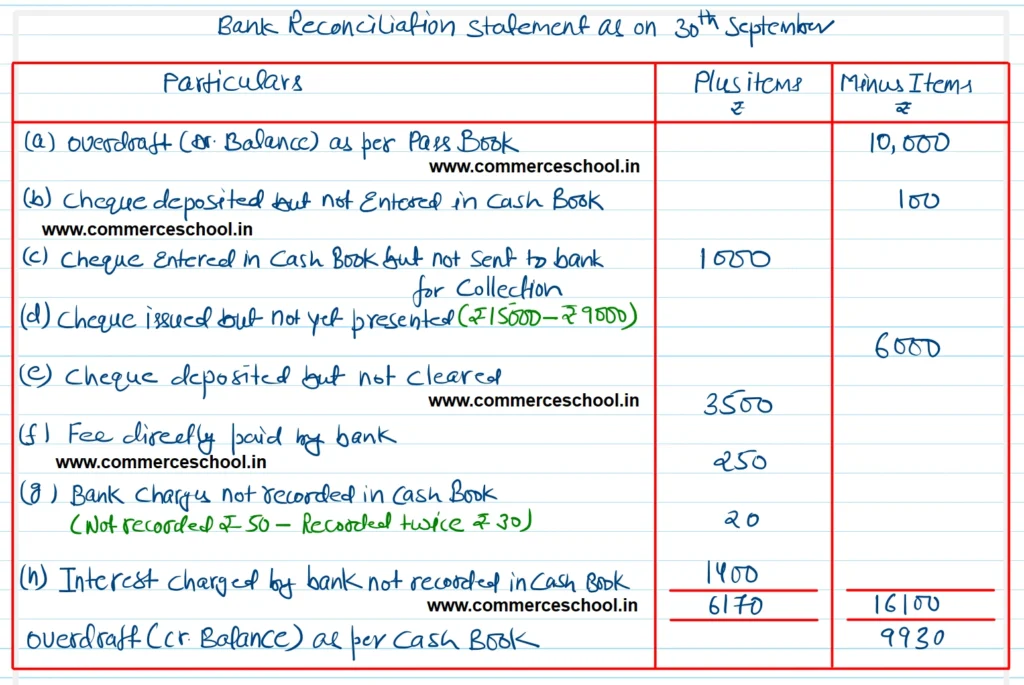 Bank Reconciliation Statement as on 30th September
Particulars Plus items Minus Items
₹ ₹
(a) overdraft (Dr. Balance) as per Pass Book 10,000
www.commerceschool.in
(b) Cheque deposited but not Entered in Cash Book 100
www.commerceschool.in
(c) Cheque Entered in Cash Book but not sent to bank 1000
for Collection
(d) Cheque issued but not yet presented (₹15000 – ₹9000)
6000
(e) Cheque deposited but not cleared
www.commerceschool.in 3500
(f) Fee directly paid by bank
www.commerceschool.in 250
(g) Bank Charges not recorded in Cash Book
(Not recorded ₹ 50 – Recorded twice ₹ 30) 20
(h) Interest charged by bank not recorded in Cash Book 1400
www.commerceschool.in 6170 16100
overdraft (cr. Balance) as per Cash Book 9930